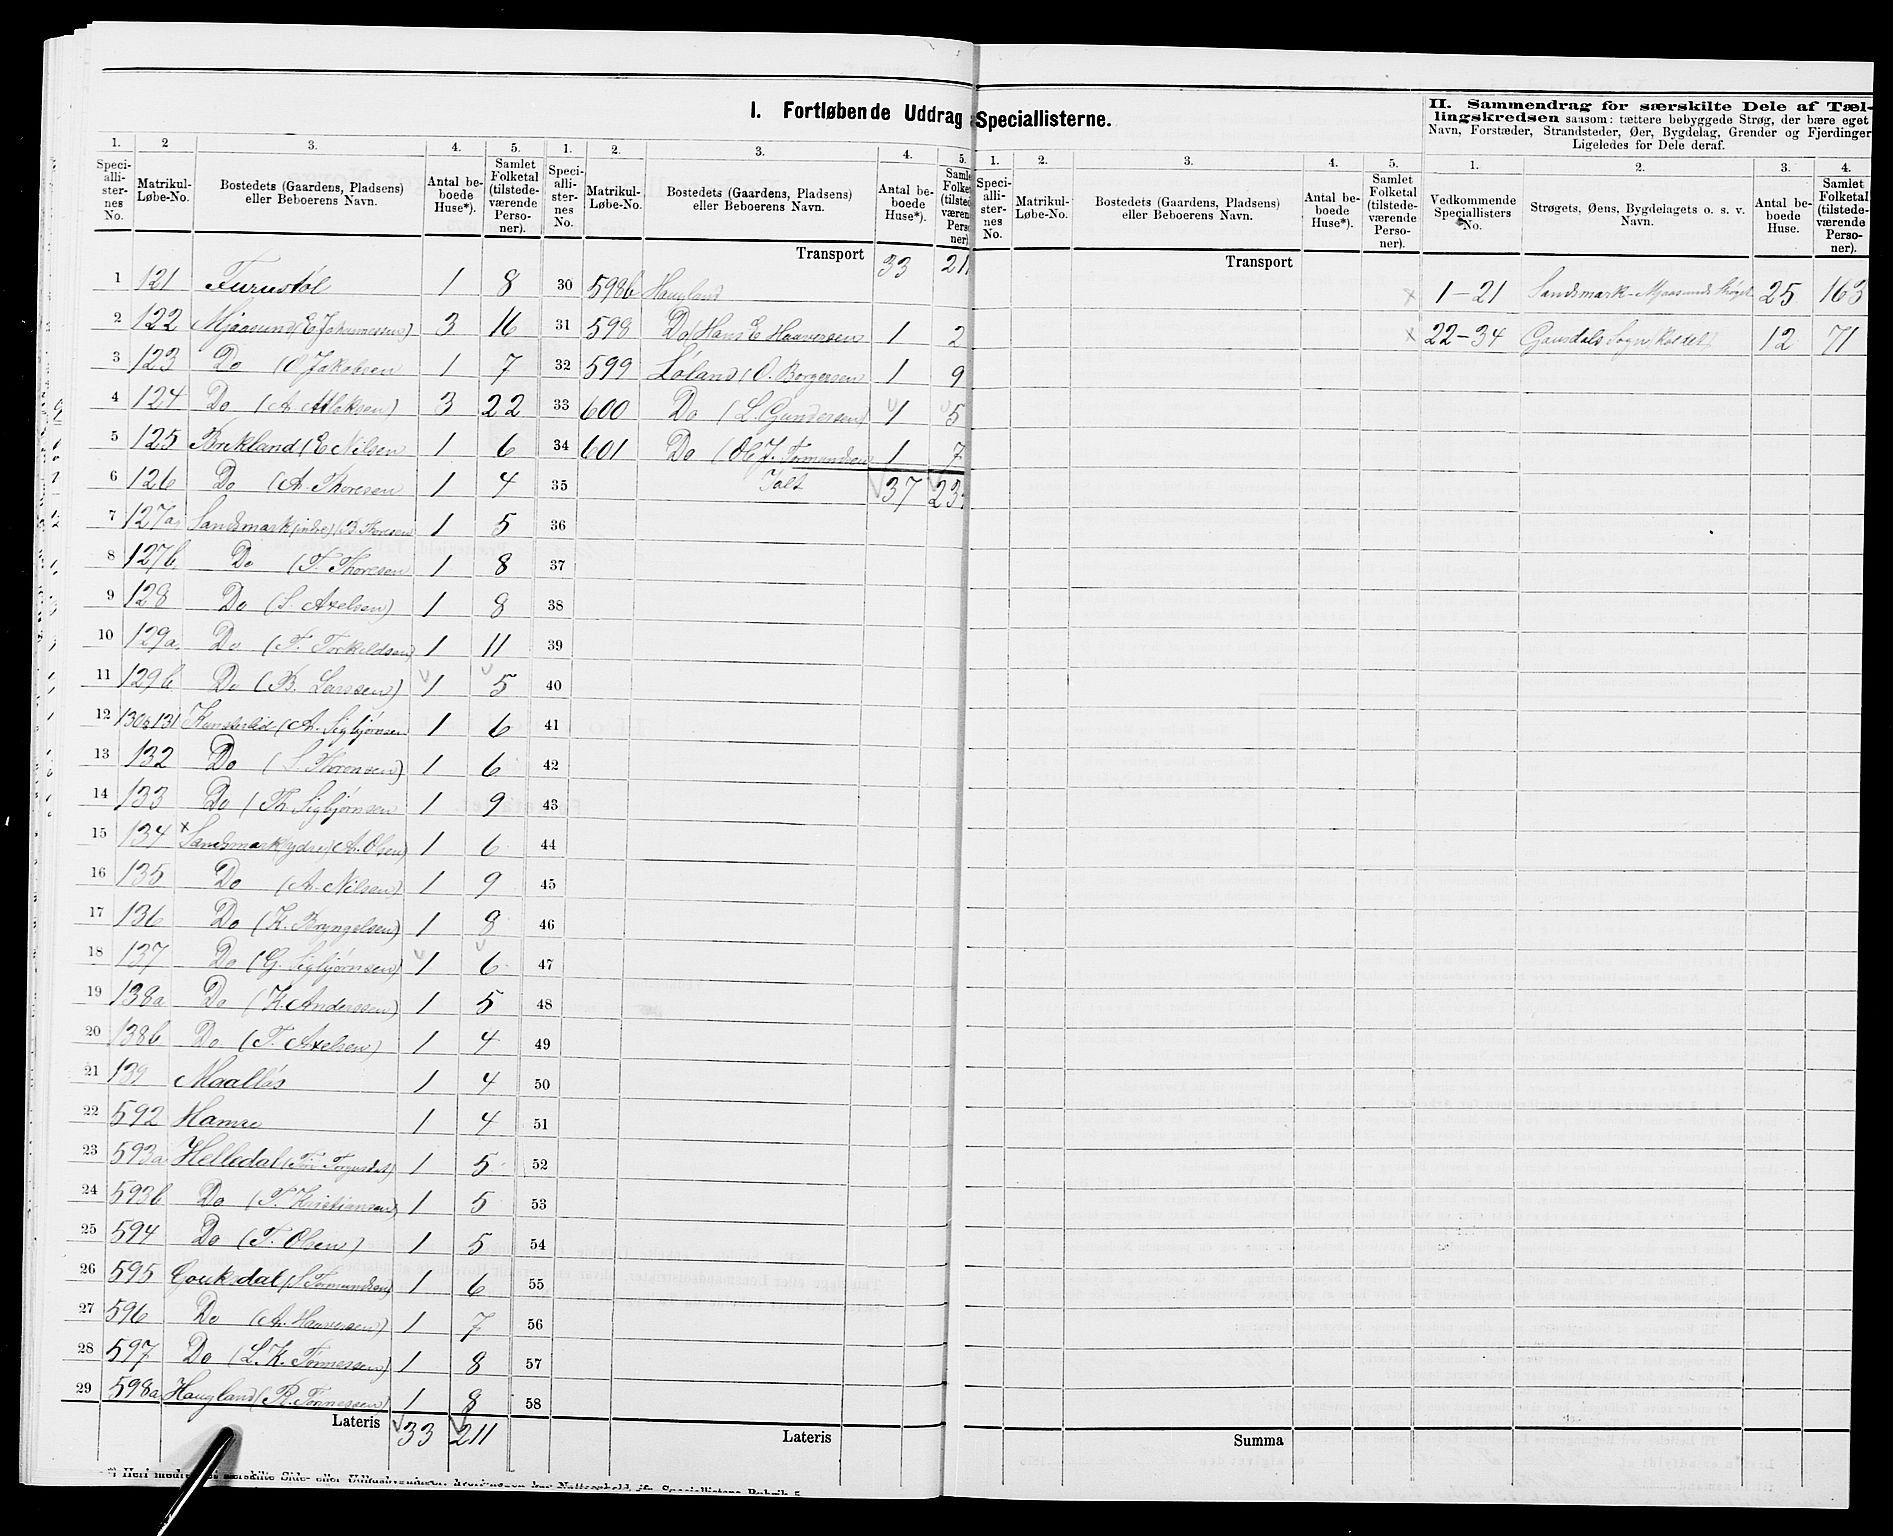 I. Fortløbende Uddrag Speciallisterne.
II. Sammendrag for særskilte Dele af Tæl-
lingskredsen saasom: tættere bebyggede Strøg, der bære eget
Navn, Forstæder, Strandsteder, Øer, Bygdelag, Grender og Fjerdinger
Ligeledes for Dele deraf.
1. 2 3. 4. 5. 1. 2. 3. 4. 5. 1. 2. 3. 4. 5. 1. 2. 3. 4.
Speci-alli-ster-nes No. Matrikul-Løbe-No. Bostedets (Gaardens, Pladsens) eller Beboerens Navn. Antal be-boede Huse*). Samlet Folketal (tilstede-værende Perso-ner).
Speci-alli-ster-nes No. Matrikul-Løbe-No. Bostedets (Gaardens, Pladsens) eller Beboerens Navn. Antal be-boede Huse*). Samlet Folketal (tilstede-værende Perso-ner).
Speci-alli-ster-nes No. Matrikul-Løbe-No. Bostedets (Gaardens, Pladsens) eller Beboerens Navn. Antal be-boede Huse*). Samlet Folketal (tilstede-værende Perso-ner).
Vedkommende Speciallisters No. Strøgets, Øens, Bygdelagets o. s. v. Navn. Antal be-boede Huse. Samlet Folketal (tilstede-værende Perso-ner).
1 121 Furustøl 1 8
2 122 Mjaasund (E Johannessen) 3 16
3 123 Do (O Jakobsen 1 7
4 124 Do (A. Atlaksen) 3 22
5 125 Brekland (E Nilsen 1 6
6 126 Do (A. Thoresen 1 4
7 127a Sandsmark (indre) (B Thoresen 1 5
8 127b Do (T. Thoresen 1 8
9 128 Do (S. Axelsen) 1 8
10 129a Do (T. Torkeldsen) 1 11
11 129b Do (B. Larssen) 1 5
12 130 & 131 (A. Sigbjørnsen 1 6
13 132 Do (S. Thorensen) 1 6
14 133 Do (Th. Sigbjørnsen 1 9
15 134 × Sandsmark ydre (A. Olsen) 1 6
16 135 Do (A. Nilsen) 1 9
17 136 Do (K. Bryngelsen) 1 8
18 137 Do (G. Sigbjørnsen) 1 6
19 138a Do (K. Anderssen) 1 5
20 138b Do (T. Axelsen) 1 4
21 139 Maalløs 1 4
22 592 Hamre 1 4
23 593a Helledal 1 5
24 593b Do (T. Kristiansen) 1 5
25 594 Do (T. Olsen) 1 5
26 595 (S Tormundsen) 1 6
27 596 Do (A. Haaversen) 1 7
28 597 Do (L. K. Tønnessen) 1 8
29 598a Haugland (R. Tønnessen) 1 8
Lateris 33 211
Transport 33 211
30 598b Haugland
31 598 Do (Hans E Haaversen 1 2
32 599 Løland (O. Borgersen 1 9
33 600 Do (L. Gundersen) 1 5
34 601 Do (Ole J. Tormundsen 1 7
35 Ialt 37 23
36
37
38
39
40
41
42
43
44
45
46
47
48
49
50
51
52
53
54
55
56
57
58
Lateris
Transport
Summa
× 1-21 Sandsmark-Mjaasunds 25 163
× 22-34 Gausdals Sogn 12 71